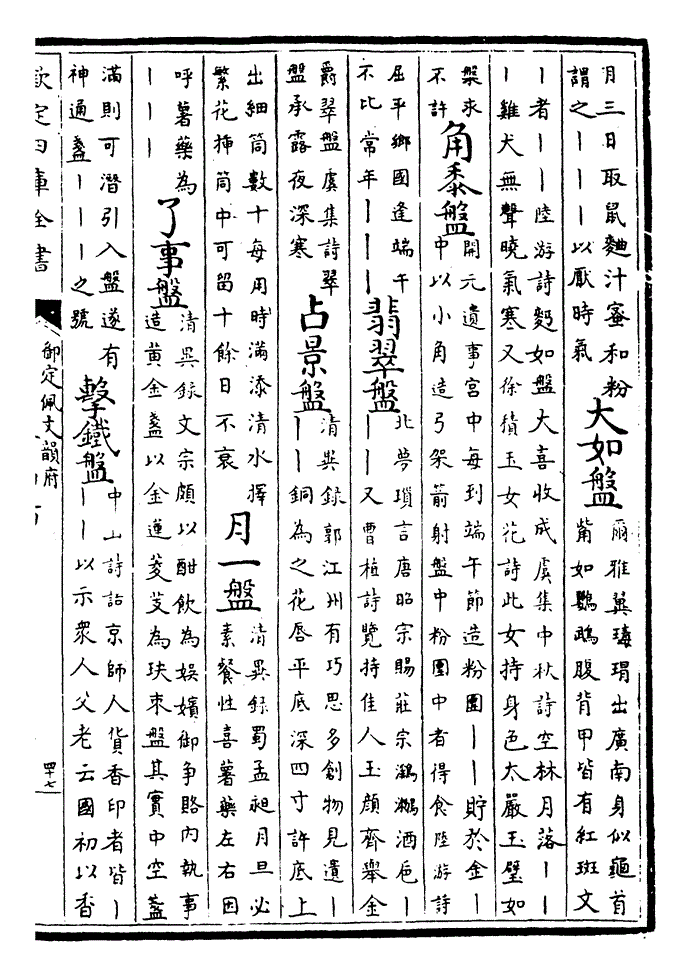 月三日取鼠麯汁蜜和粉
謂之｜｜｜以厭時氣
大如盤
爾雅翼瑇瑁出廣南身似龜首
觜如鸚鵡腹背甲皆有紅斑文
｜者｜｜陸游詩麪如盤大喜收成虞集中秋詩空林月落｜｜
｜雞犬無聲曉氣寒又徐積玉女花詩此女持身色太嚴玉璧如
槃來
不許
角黍盤
開元遺事宮中每到端午節造粉團｜｜貯於金｜
中以小角造弓架箭射盤中粉團中者得食陸游詩
屈平鄉國逢端午
不比常年｜｜｜
翡翠盤
北夢瑣言唐昭宗賜莊宗鸂鶒酒巵｜
｜｜又曹植詩覽持佳人玉顔齊舉金
爵翠盤虞集詩翠
盤承露夜深寒
占景盤
清異錄郭江州有巧思多創物見遺｜
｜｜銅為之花唇平底深四寸許底上
出細筒數十每用時滿添清水擇
繁花揷筒中可留十餘日不衰
月一盤
清異錄蜀孟昶月旦必
素餐性喜薯藥左右因
呼薯藥為
｜｜｜
了事盤
清異錄文宗頗以酣飲為娛嬪御争賂内執事
造黄金盞以金蓮菱芰為玞朿盤其實中空盞
滿則可潛引入盤遂有
神通盞｜｜｜之號
擊鐵盤
中山詩話京師人貨香印者皆｜
｜｜以示衆人父老云國初以香
欽定四庫全書
御定佩文韻府
四十七